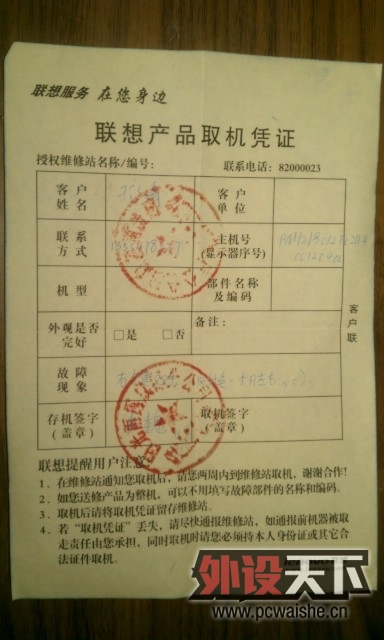 联想服务 在您身边
联想产品取机凭证
授权维修站名称/编号： 联系电话：82000023
客户姓名 客户单位
联系方式 主机号(显示器序号)
机型 部件名称及编码
外观是否完好 □是 □否 备注：
故障现象
存机签字(盖章) 取机签字(盖章)
客户联
联想提醒用户注意
1、在维修站通知您取机后，请您两周内到维修站取机，谢谢合作！
2、如您送修产品为整机，可以不用填写故障部件的名称和编码。
3、取机后请将取机凭证留存维修站。
4、若“取机凭证”丢失，请尽快通报维修站，如通报前机器被取
走责任由您承担，同时取机时请您必须持本人身份证或其它合
法证件取机。
外设天下
www.pcwaishe.cn